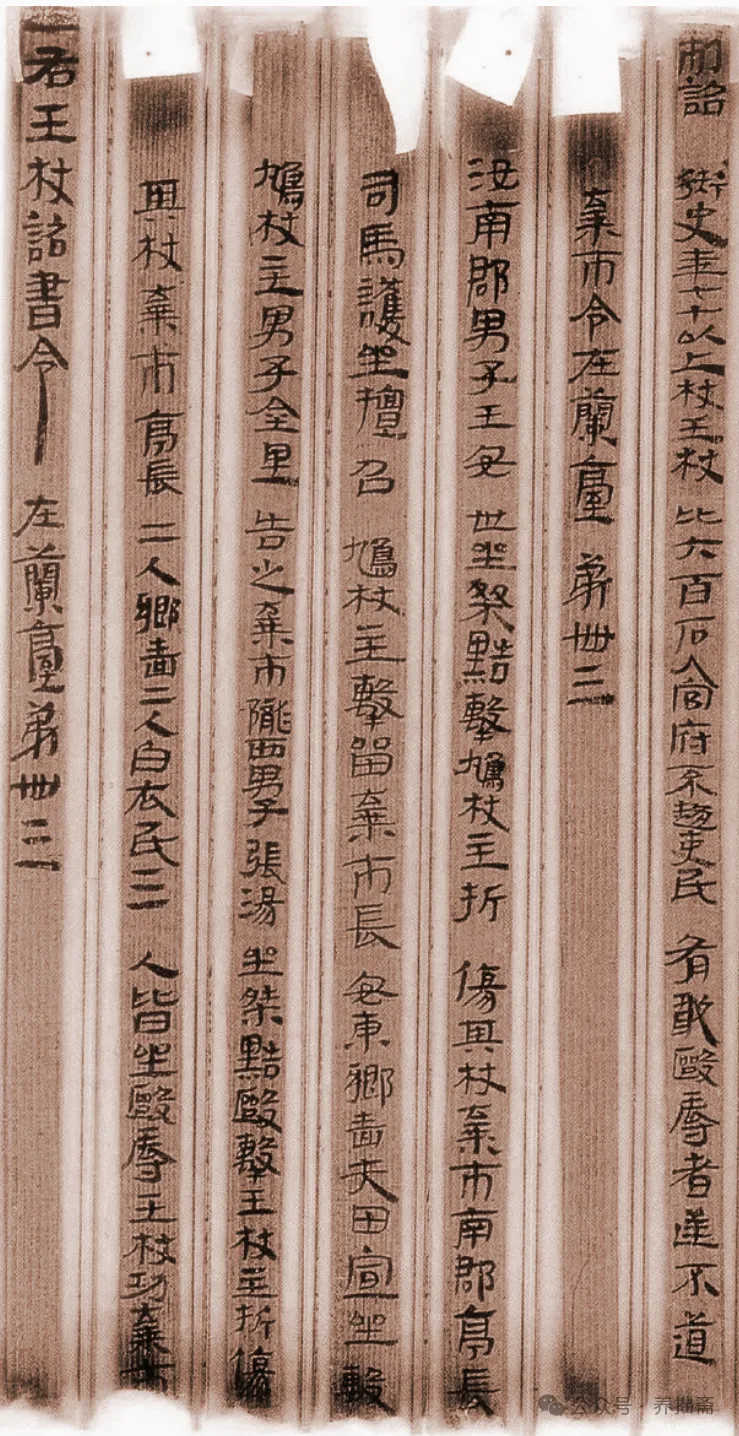 制詔 御史年七十以上杖王杖 比六百石入官府不趨吏民 有敢毆辱者逆不道
棄市令在蘭臺 第卌三
汝南郡男子王安 世坐桀黠擊鳩杖主折 傷其杖棄市南郡亭長
司馬護坐擅 召 鳩杖主擊留棄市長 安東鄉嗇夫田宣坐毄
鳩杖主男子金里 告之棄市隴西男子張湯 坐桀黠毆擊王杖主折傷
其杖棄市亭長 二人鄉嗇二人白衣民三 人皆坐毆辱王杖功棄市
右王杖詔書令 在蘭臺第卌三
公众号·养拙斋